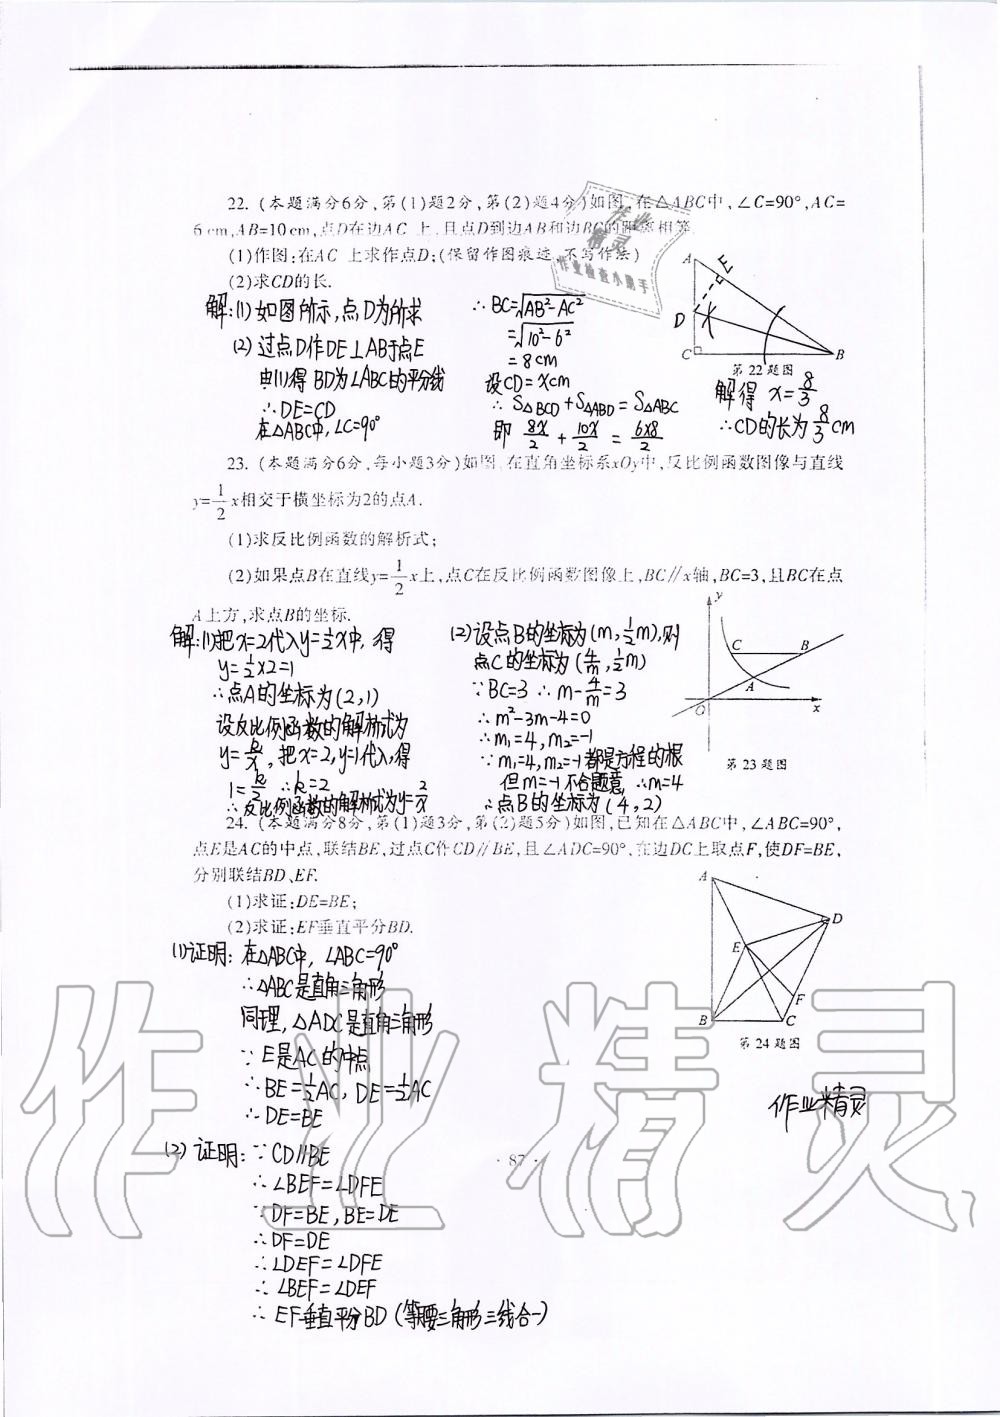 22. (本题满分6分,第(1)题2分,第(2)题4分)如图,在△ABC中,∠C=90°,AC=
6 cm,AB=10 cm,点D在边AC 上,且点D到边AB和边BC的距离相等.
(1)作图:在AC 上求作点D;(保留作图痕迹,不写作法)
(2)求CD的长.
作业
精灵
作业检查小助手
解:(1)如图所示,点D为所求
(2)过点D作DE⊥AB于点E
由(1)得 BD为∠ABC的平分线
∴DE=CD
在△ABC中,∠C=90°
∴BC=√AB²-AC²
=√10²-6²
=8cm
设CD=xcm
∴S△BCD+S△ABD=S△ABC
即 8x/2 + 10x/2 = 6x8/2
A
E
D
C
B
第22题图
解得 x=8/3
∴CD的长为8/3cm
23. (本题满分6分,每小题3分)如图,在直角坐标系xOy中,反比例函数图像与直线
y=1/2x相交于横坐标为2的点A.
(1)求反比例函数的解析式;
(2)如果点B在直线y=1/2x上,点C在反比例函数图像上,BC∥x轴,BC=3,且BC在点
A上方,求点B的坐标.
解:(1)把x=2代入y=1/2x中,得
y=1/2x2=1
∴点A的坐标为(2,1)
设反比例函数的解析式为
y=k/x,把x=2,y=1代入,得
1=k/2 ∴k=2
∴反比例函数的解析式为y=2/x
(2)设点B的坐标为(m,1/2m),则
点C的坐标为(4/m,1/2m)
∵BC=3 ∴m-4/m=3
∴m²-3m-4=0
∴m₁=4,m₂=-1
∵m₁=4,m₂=-1都是方程的根
但m=-1不合题意,∴m=4
∴点B的坐标为(4,2)
y
C
B
A
O
x
第23题图
24. (本题满分8分,第(1)题3分,第(2)题5分)如图,已知在△ABC中,∠ABC=90°,
点E是AC的中点,联结BE,过点C作CD∥BE,且∠ADC=90°,在边DC上取点F,使DF=BE,
分别联结BD、EF.
(1)求证:DE=BE;
(2)求证:EF垂直平分BD.
A
D
E
F
B
C
第24题图
(1)证明:在△ABC中,∠ABC=90°
∴△ABC是直角三角形
同理,△ADC是直角三角形
∵E是AC的中点
∴BE=1/2AC,DE=1/2AC
∴DE=BE
(2)证明:∵CD∥BE
∴∠BEF=∠DFE
∵DF=BE,BE=DE
∴DF=DE
∴∠DEF=∠DFE
∴∠BEF=∠DEF
∴EF垂直平分BD(等腰三角形三线合一)
作业精灵
· 87 ·
作业精灵